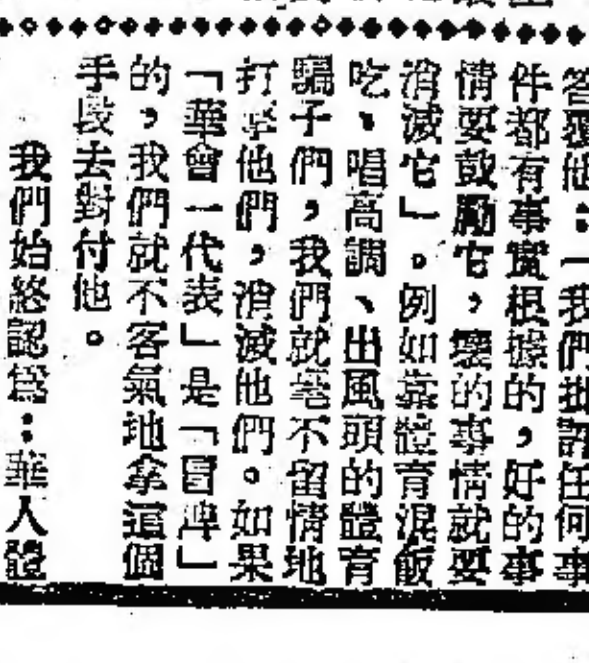 答覆他：「我們批評任何事
件都有事實根據的，好的事
情要鼓勵它，壞的事情就要
消滅它」。例如靠體育混飯
吃、唱高調、出風頭的體育
騙子們，我們就毫不留情地
打擊他們，消滅他們。如果
「華會一代表」是「冒牌」
的，我們就不客氣地拿這個
手段去對付他。
我們始終認爲：華人體